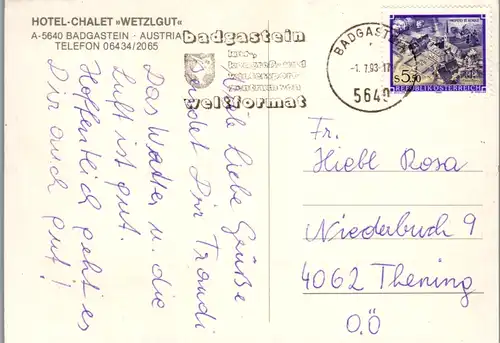 HOTEL-CHALET »WETZLGUT«
A-5640 BADGASTEIN · AUSTRIA
TELEFON 06434/2065
badgastein
weltformat
BADGASTEIN
-1.7.93-17
5640
S 5,50
REPUBLIK ÖSTERREICH
Viele liebe Grüße
sendet Dir Traudi
Das Wetter u. die
Luft ist gut.
Hoffentlich geht es
Dir auch gut!
Fr.
Hiebl Rosa
Niederbuch 9
4062 Thening
O.Ö